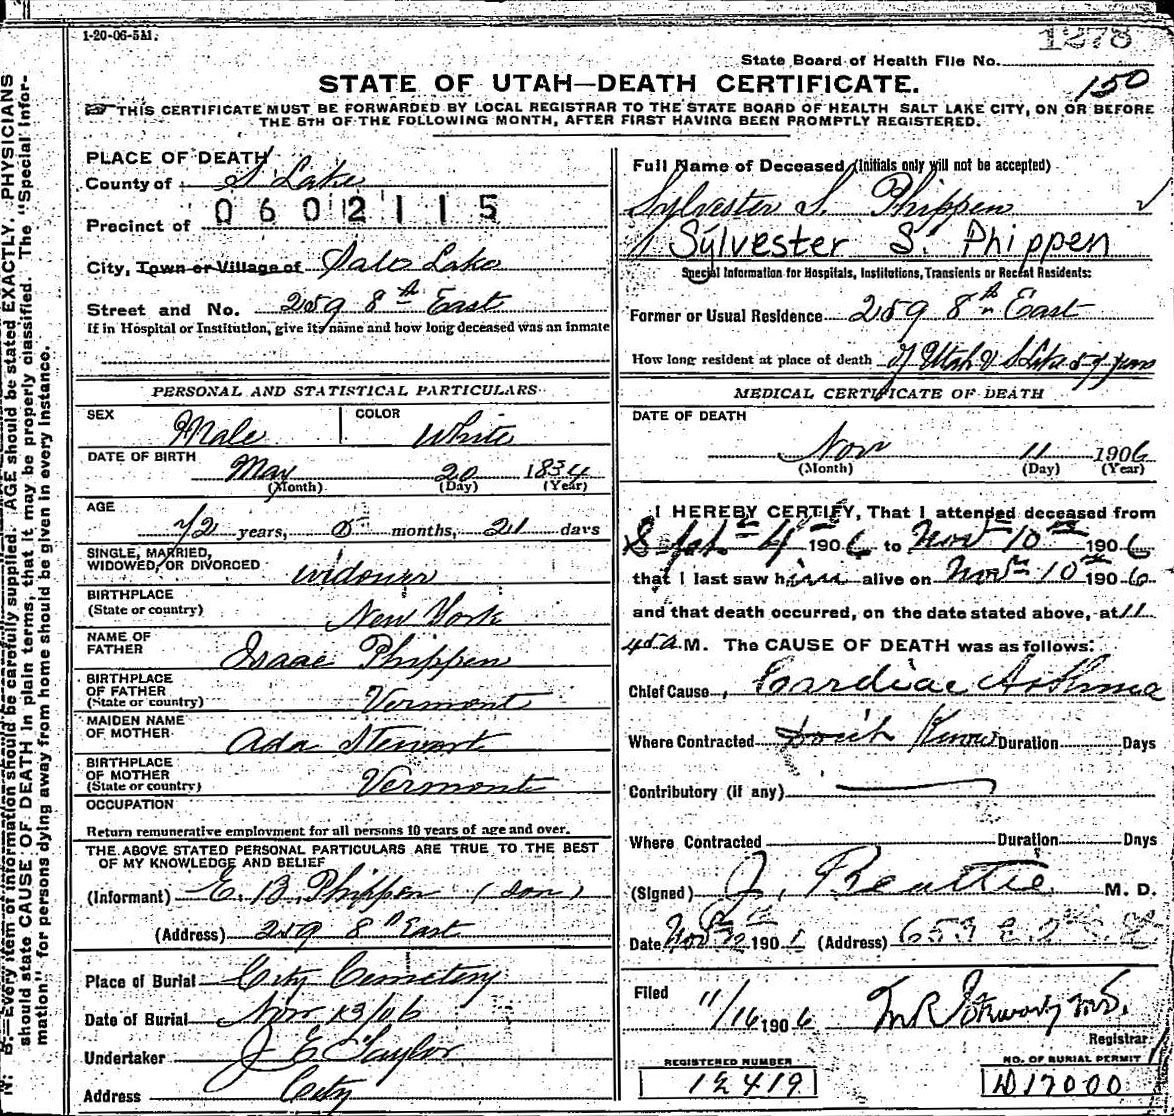 1-20-06-5M.
1278
State Board of Health File No.
150
STATE OF UTAH—DEATH CERTIFICATE.
THIS CERTIFICATE MUST BE FORWARDED BY LOCAL REGISTRAR TO THE STATE BOARD OF HEALTH SALT LAKE CITY, ON OR BEFORE
THE 5TH OF THE FOLLOWING MONTH, AFTER FIRST HAVING BEEN PROMPTLY REGISTERED.
PLACE OF DEATH
County of S Lake
Precinct of 0602115
City, Town or Village of Salt Lake
Street and No. 259 8th East
If in Hospital or Institution, give its name and how long deceased was an inmate
PERSONAL AND STATISTICAL PARTICULARS
SEX Male COLOR White
DATE OF BIRTH
May 20 1834
(Month) (Day) (Year)
AGE
72 years, 5 months, 21 days
SINGLE, MARRIED,
WIDOWED, OR DIVORCED widower
BIRTHPLACE
(State or country) New York
NAME OF
FATHER Isaac Phippen
BIRTHPLACE
OF FATHER
(State or country) Vermont
MAIDEN NAME
OF MOTHER Ada Stewart
BIRTHPLACE
OF MOTHER
(State or country) Vermont
OCCUPATION
Return remunerative employment for all persons 10 years of age and over.
THE ABOVE STATED PERSONAL PARTICULARS ARE TRUE TO THE BEST
OF MY KNOWLEDGE AND BELIEF
(Informant) E. B. Phippen (son)
(Address) 259 8th East
Place of Burial City Cemetery
Date of Burial Nov 13/06
Undertaker J E Taylor
Address City
Full Name of Deceased (Initials only will not be accepted)
Sylvester S. Phippen
Sylvester S. Phippen
Special Information for Hospitals, Institutions, Transients or Recent Residents:
Former or Usual Residence 259 8th East
How long resident at place of death of Utah & S Lake 59 years
MEDICAL CERTIFICATE OF DEATH
DATE OF DEATH
Nov 11 1906
(Month) (Day) (Year)
I HEREBY CERTIFY, That I attended deceased from
Sept 4th 1906 to Nov 10th 1906
that I last saw him alive on Nov 10th 1906
and that death occurred, on the date stated above, at 11
45 a.M. The CAUSE OF DEATH was as follows:
Chief Cause, Cardiac Asthma
Where Contracted Don't Know Duration Days
Contributory (if any)
Where Contracted Duration Days
(Signed) J. Beattie M. D.
Date Nov 12 1906 (Address) 653 E. 2nd S.
Filed 11/16 1906 M.D.
Registrar
REGISTERED NUMBER
12419
NO. OF BURIAL PERMIT
D17000
N. B.—Every item of information should be carefully supplied. AGE should be stated EXACTLY. PHYSICIANS
should state CAUSE OF DEATH in plain terms, that it may be properly classified. The "Special Infor-
mation" for persons dying away from home should be given in every instance.